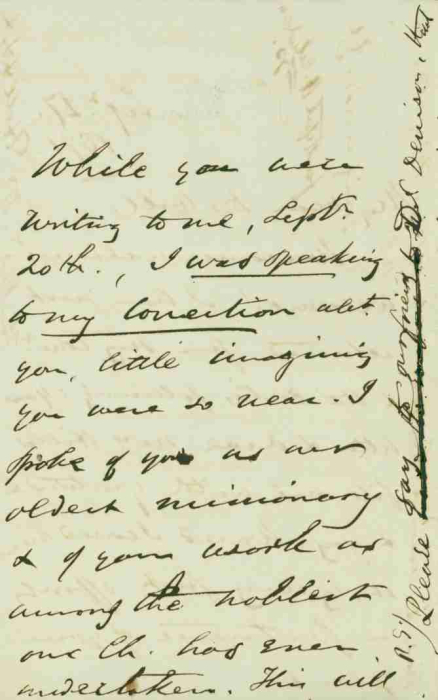 While you were
writing to me, Sept.
20th., I was speaking
to my Convention abt.
you, little imagining
you were so near. I
spoke of you as our
oldest missionary
& of your work as
among the noblest
our Ch. has ever
undertaken. This will
P.S.) Please say to Denison, that